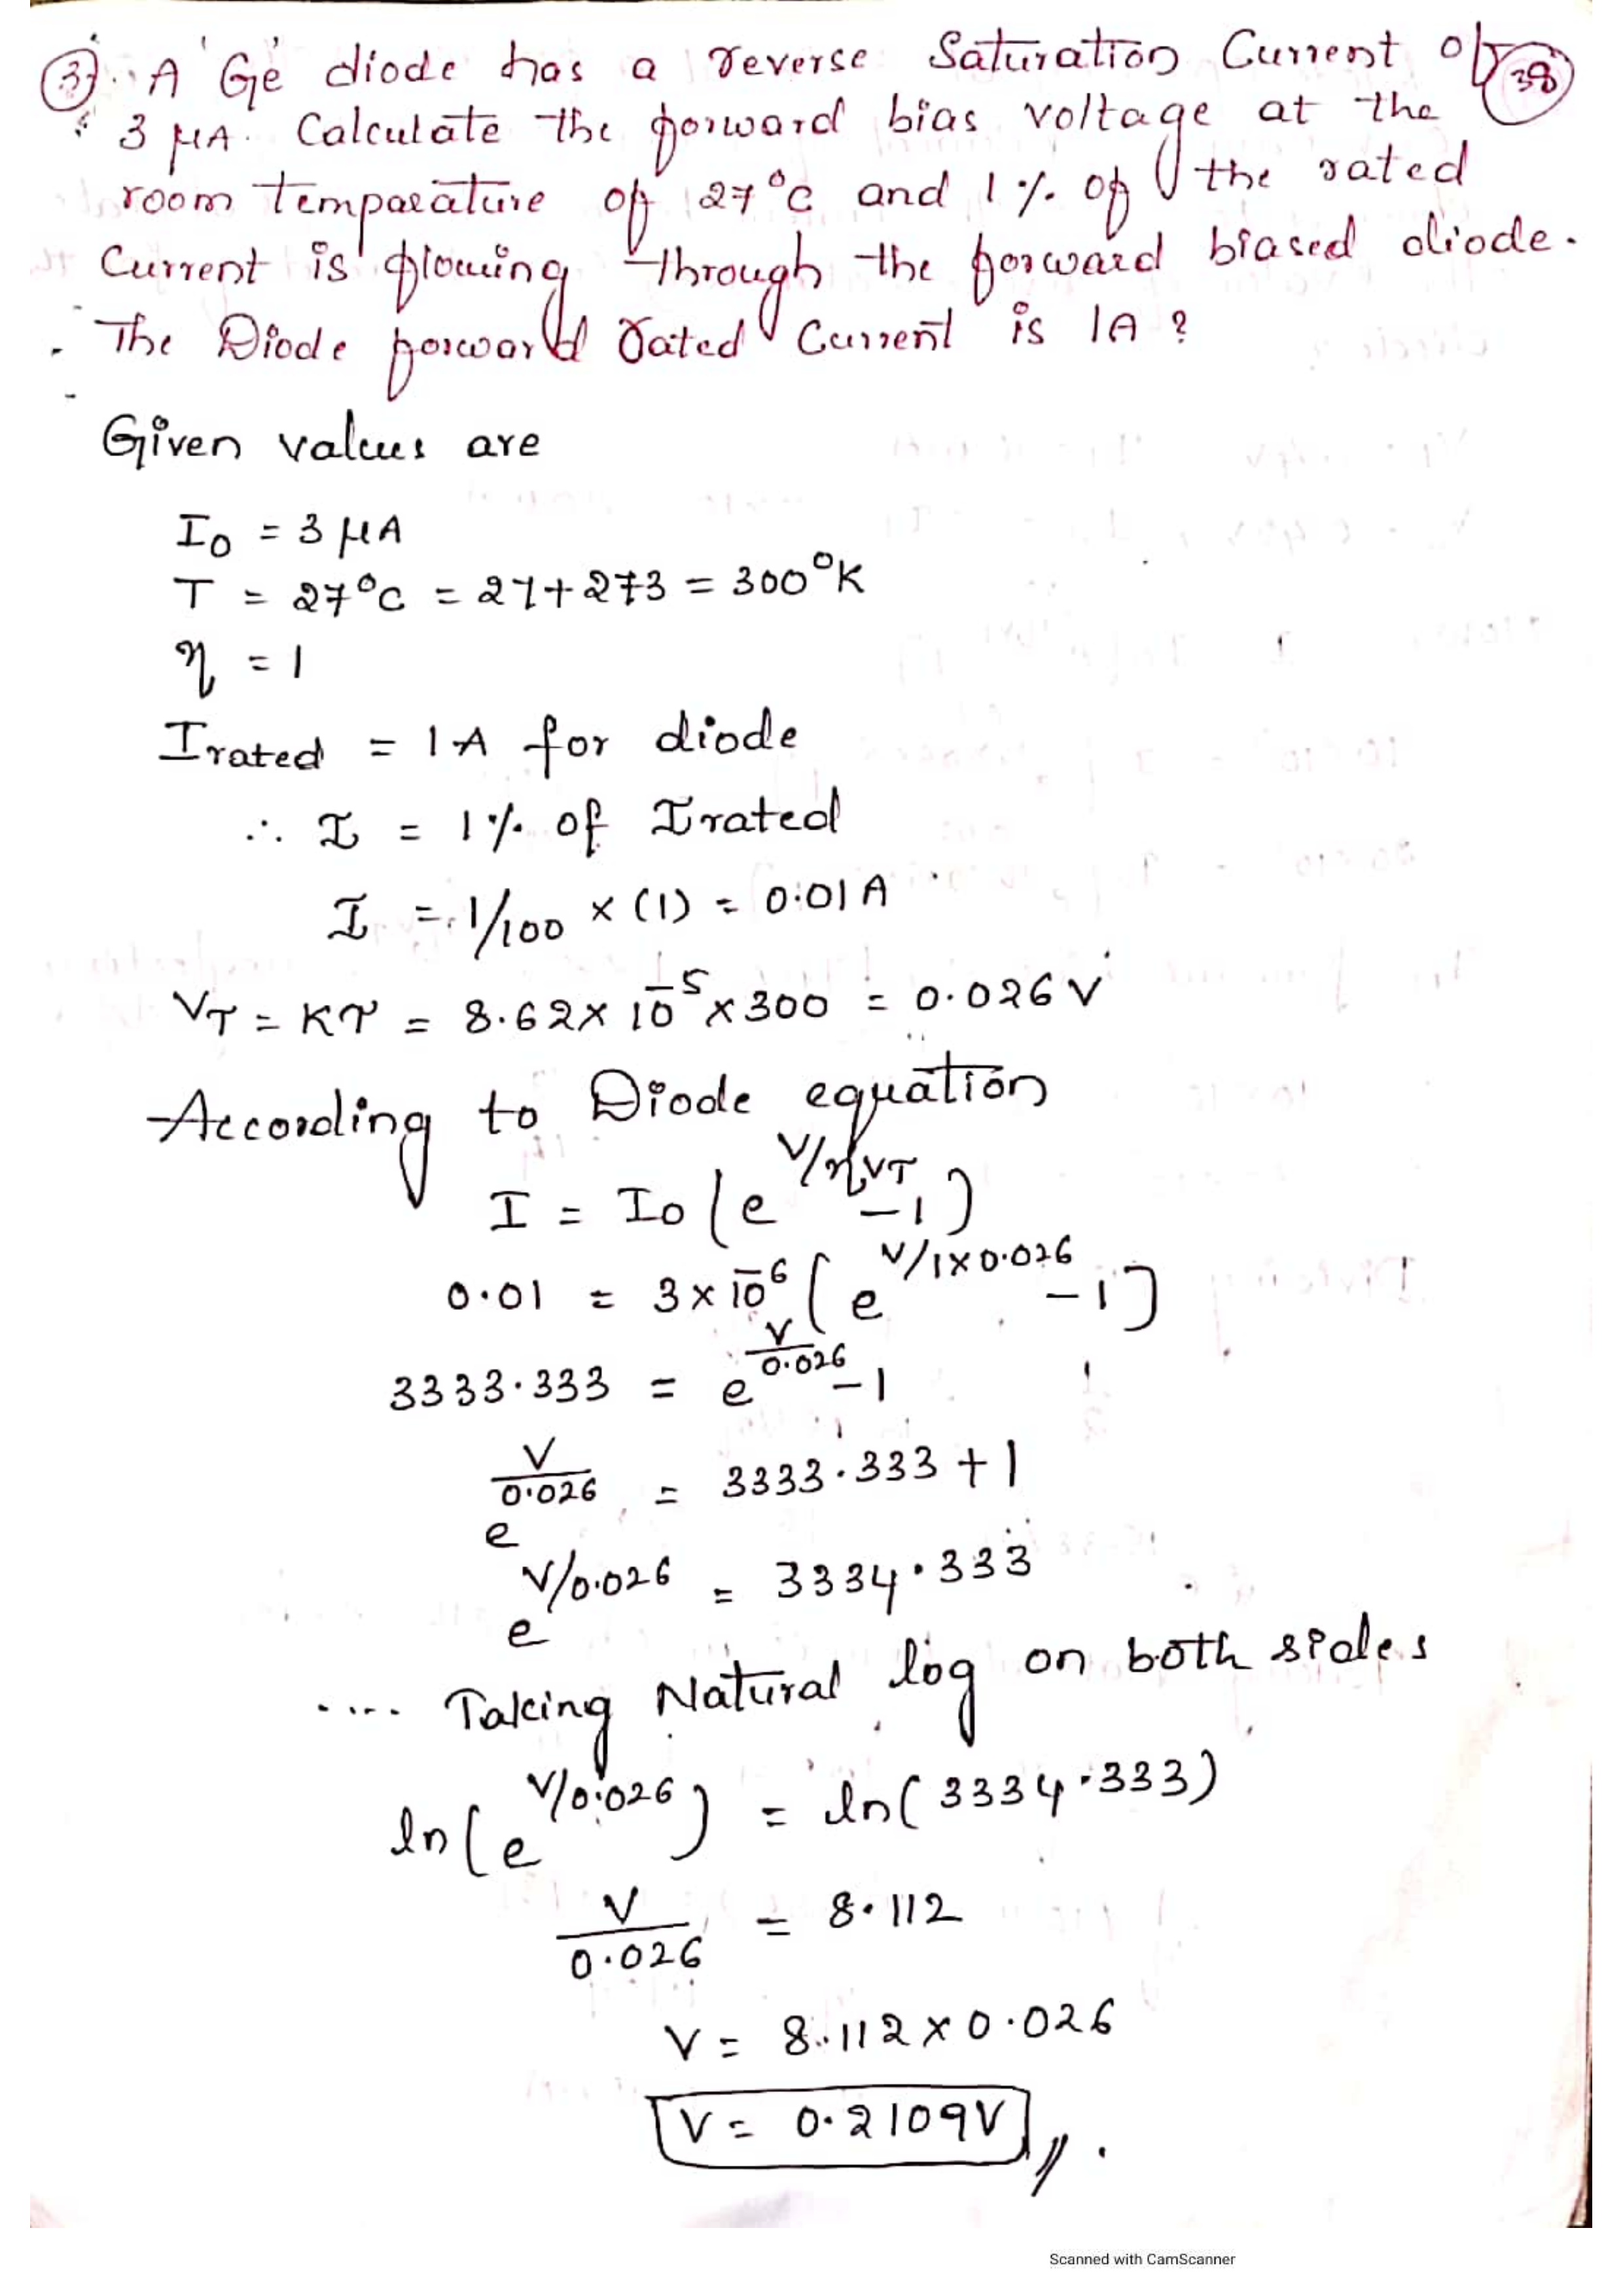 3). A 'Ge' diode has a reverse Saturation Current of 38
3 μA. Calculate the forward bias voltage at the
room tempaeature of 27°C and 1% of the rated
Current is flowing through the forward biased diode.
The Diode forward rated Current is 1A ?
Given values are
I0 = 3 μA
T = 27°C = 27+273 = 300°K
η = 1
Irated = 1A for diode
∴ I = 1% of Irated
I = 1/100 × (1) = 0.01A
VT = KT = 8.62×10^-5 ×300 = 0.026V
According to Diode equation
I = I0 (e^V/ηVT -1)
0.01 = 3×10^-6 (e^V/1×0.026 -1)
3333.333 = e^V/0.026 -1
e^V/0.026 = 3333.333 + 1
e^V/0.026 = 3334.333
.... Taking Natural log on both sides
ln(e^V/0.026) = ln(3334.333)
V/0.026 = 8.112
V = 8.112×0.026
V = 0.2109V //.
Scanned with CamScanner